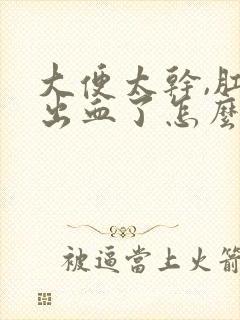 大便太幹,肛
出血了怎麼
被逼當上火箭